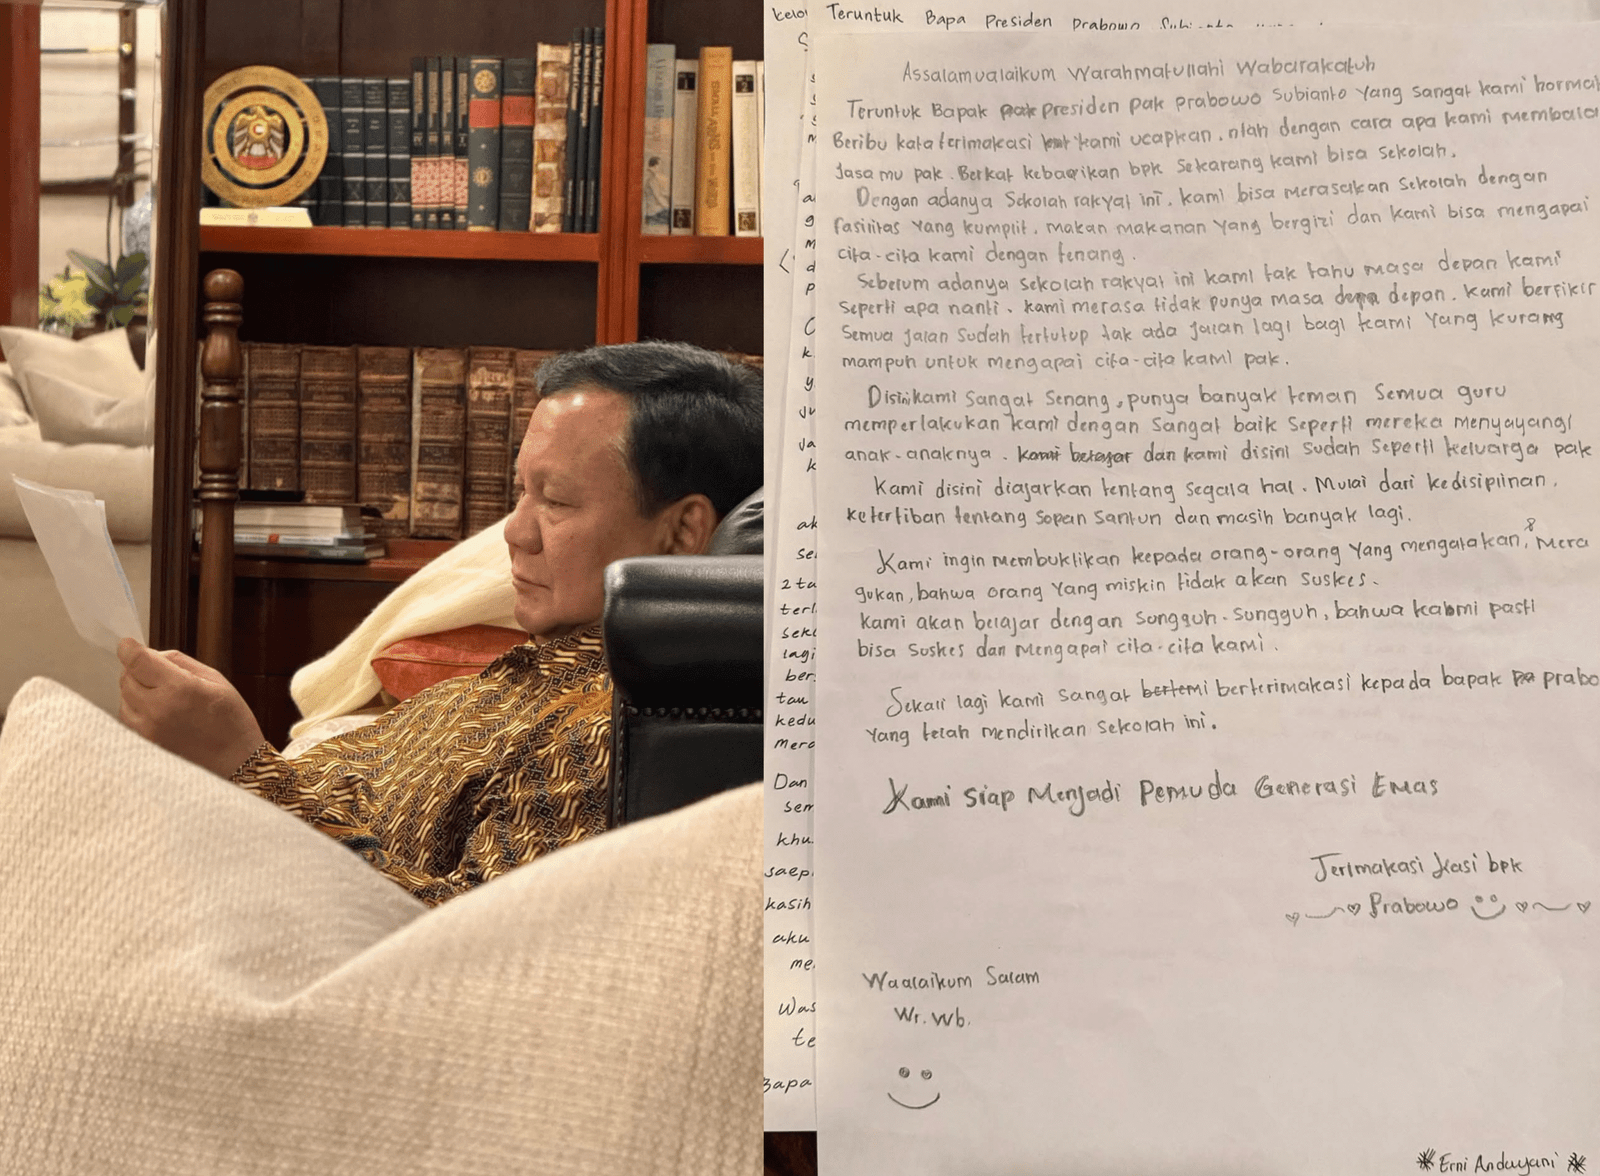 Teruntuk Bapa Presiden Prabowo
Assalamualaikum Warahmatullahi Wabarakatuh
Teruntuk Bapak pak Presiden pak prabowo Subianto Yang Sangat kami hormat
Beribu kata terimakasi kami ucapkan. ntah dengan cara apa kami membala
Jasa mu pak. Berkat kebaikan bpk Sekarang kami bisa sekolah.
Dengan adanya Sekolah rakyat ini. kami bisa merasakan Sekolah dengan
fasilitas Yang kumplit. makan makanan Yang bergizi dan kami bisa mengapai
cita-cita kami dengan tenang.
Sebelum adanya sekolah rakyat ini kami tak tahu masa depan kami
Seperti apa nanti. kami merasa tidak punya masa depa depan. kami berfikir
Semua jalan Sudah tertutup tak ada jalan lagi bagi kami Yang kurang
mampuh untuk mengapai cita-cita kami pak.
Disini kami Sangat Senang, punya banyak teman Semua guru
memperlakukan kami dengan Sangat baik Seperti mereka menyayangi
anak-anaknya. kami belajar dan kami disini Sudah Seperti keluarga pak
Kami disini diajarkan tentang Segala hal. Mulai dari kedisiplinan.
ketertiban tentang Sopan Santun dan masih banyak lagi.
Kami ingin membuktikan kepada orang-orang Yang mengatakan, & Mera
gukan, bahwa orang Yang miskin tidak akan Suskes.
Kami akan belajar dengan Sungguh-Sungguh, bahwa kabmi pasti
bisa Suskes dan Mengapai cita-cita kami.
Sekali lagi kami Sangat bertemi berterimakasi kepada bapak pa prabo
Yang telah mendirikan sekolah ini.
Kami Siap Menjadi Pemuda Generasi Emas
Terimakasi Kasi bpk
Prabowo
Waalaikum Salam
Wr. Wb.
Erni Andayani
2 ta
lagi
tau
kedu
Dan
sem
khu
kasih
aku
Was
te
Bapa